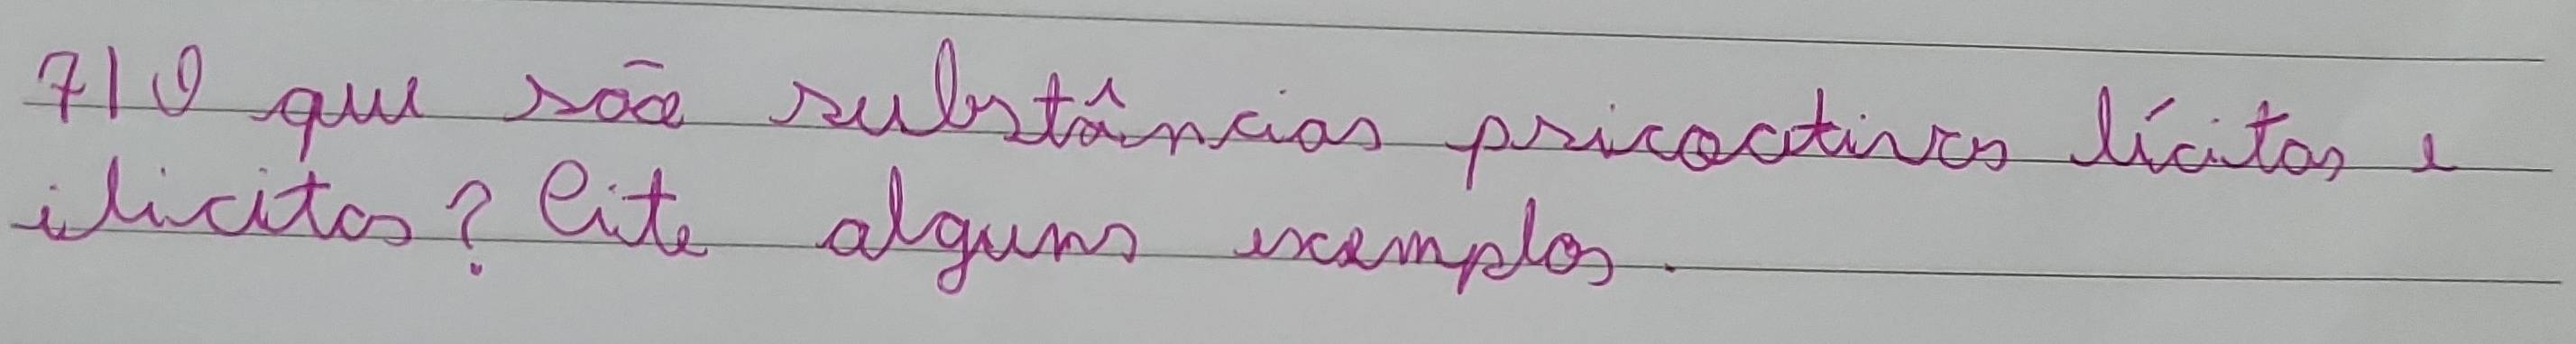 7| O que são substâncias psicoactivas lícitas e
ilicitas? Cite alguns exemplos.